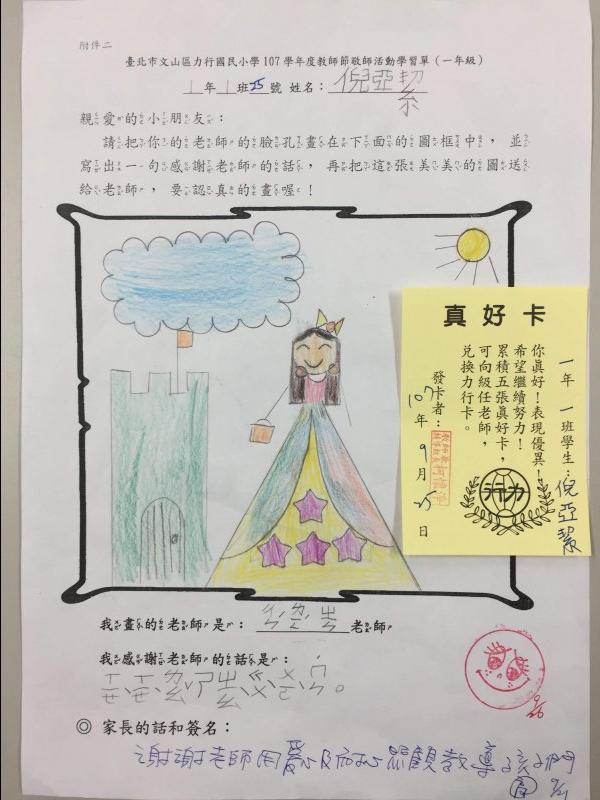 附件二
臺北市文山區力行國民小學107學年度教師節敬師活動學習單（一年級）
1年1班25號 姓名：倪亞絜
親愛的小朋友：
請把你的老師的臉孔畫在下面的圖框中，並
寫出一句感謝老師的話，再把這張美美的圖送
給老師，要認真的畫喔！
真好卡
一年一班學生：倪亞絜
你真好！表現優異！
希望繼續努力！
累積五張真好卡，
可向級任老師，
兌換力行卡。
發卡者：
107年9月25日
力行
我畫的老師是：老師
我感謝老師的話是：
9/26
◎ 家長的話和簽名：
謝謝老師用愛及耐心照顧教導孩子們
9/21